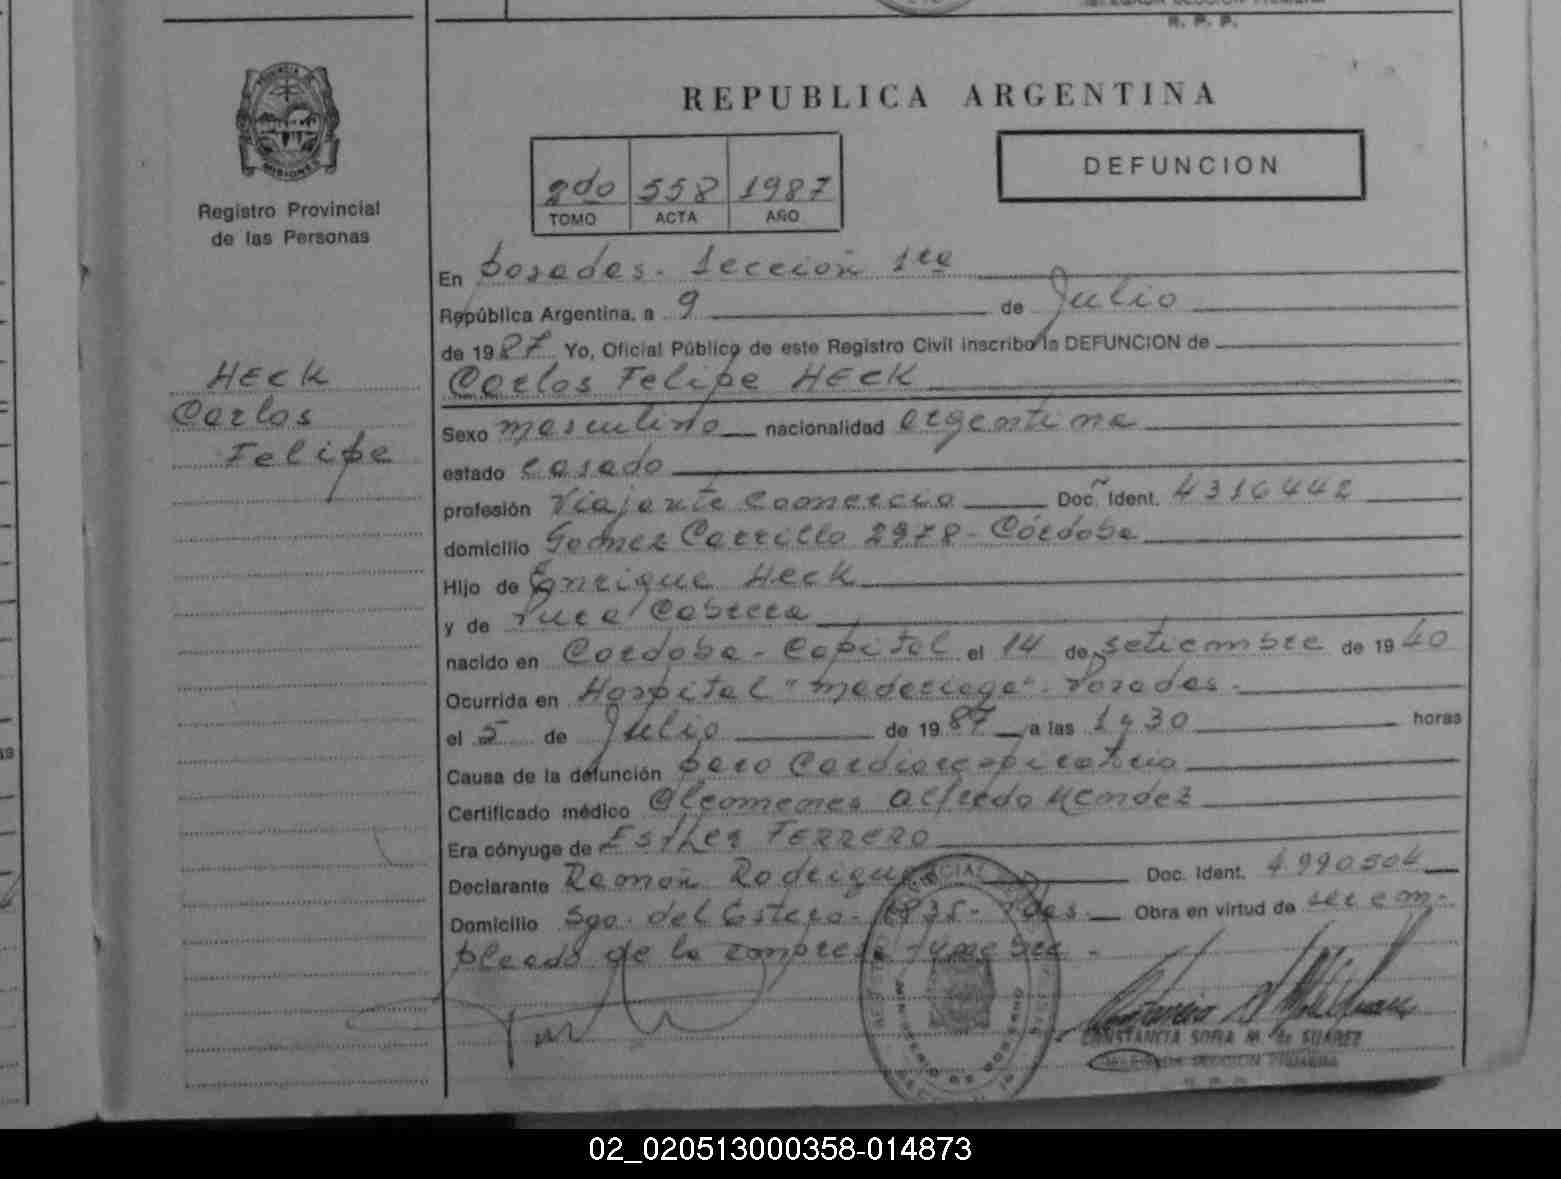 R. P. P.
REPUBLICA ARGENTINA
PROVINCIA DE MISIONES
Registro Provincial
de las Personas
DEFUNCION
2do 558 1987
TOMO ACTA AÑO
En Posadas - Sección 1ra
República Argentina, a 9 de Julio
de 1987 Yo, Oficial Público de este Registro Civil inscribo la DEFUNCION de
HECK
Carlos
Felipe
Carlos Felipe HECK
Sexo masculino nacionalidad argentina
estado casado
profesión Viajante Comercio Doc. Ident. 4316442
domicilio Gomez Carrillo 2978 - Córdoba
Hijo de Enrique Heck
y de Pura Cabrera
nacido en Cordoba - Capital el 14 de setiembre de 1940
Ocurrida en Hospital "Madariaga" - Posadas -
el 5 de Julio de 1987 a las 1 y 30 horas
Causa de la defunción paro Cardiorespiratorio
Certificado médico Cleomenes Alfredo Mendez
Era cónyuge de Esther FERRERO
Declarante Ramón Rodrigue Doc. Ident. 4.990504
Domicilio Sgo. del Estero - 1835 - Pdas Obra en virtud de ser em-
pleado de la empresa funebre -
MINISTERIO DE GOBIERNO
CONSTANCIA SOFIA M. de SUAREZ
DELEGADA SECCION PRIMERA
R. P. P.
02_020513000358-014873